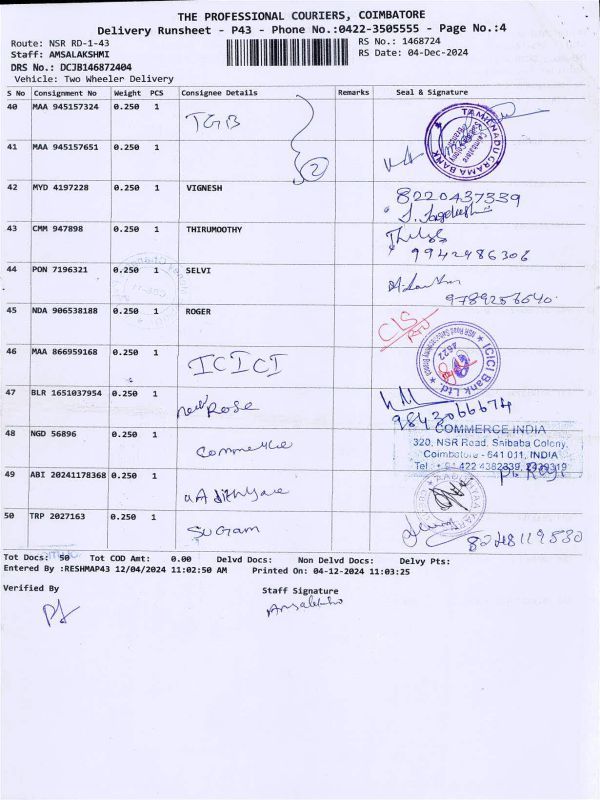 THE PROFESSIONAL COURIERS, COIMBATORE
Delivery Runsheet - P43 - Phone No.:0422-3505555 - Page No.:4
Route: NSR RD-1-43
RS No.: 1468724
Staff: AMSALAKSHMI
RS Date: 04-Dec-2024
DRS No.: DCJB146872404
Vehicle: Two Wheeler Delivery
S No Consignment No Weight PCS Consignee Details Remarks Seal & Signature
40 MAA 945157324 0.250 1 TGB
TAMILNADU GRAMA BANK
Coimbatore
41 MAA 945157651 0.250 1 2
42 MYD 4197228 0.250 1 VIGNESH 8220437339
43 CMM 947898 0.250 1 THIRUMOOTHY
9942486306
44 PON 7196321 0.250 1 SELVI
9789256640
45 NDA 906538188 0.250 1 ROGER CLS
RTO
46 MAA 866959168 0.250 1 ICICI
ICICI Bank Ltd.
4622
47 BLR 1651037954 0.250 1 Rose
9843066674
48 NGD 56896 0.250 1 Commerce
COMMERCE INDIA
320, NSR Road, Saibaba Colony,
Coimbatore - 641 011, INDIA
Tel : + 91 422 4382339, 2439319
49 ABI 20241178368 0.250 1
50 TRP 2027163 0.250 1 Sugam
8248119830
Tot Docs: 50 Tot COD Amt: 0.00 Delvd Docs: Non Delvd Docs: Delvy Pts:
Entered By :RESHMAP43 12/04/2024 11:02:50 AM Printed On: 04-12-2024 11:03:25
Verified By
Staff Signature